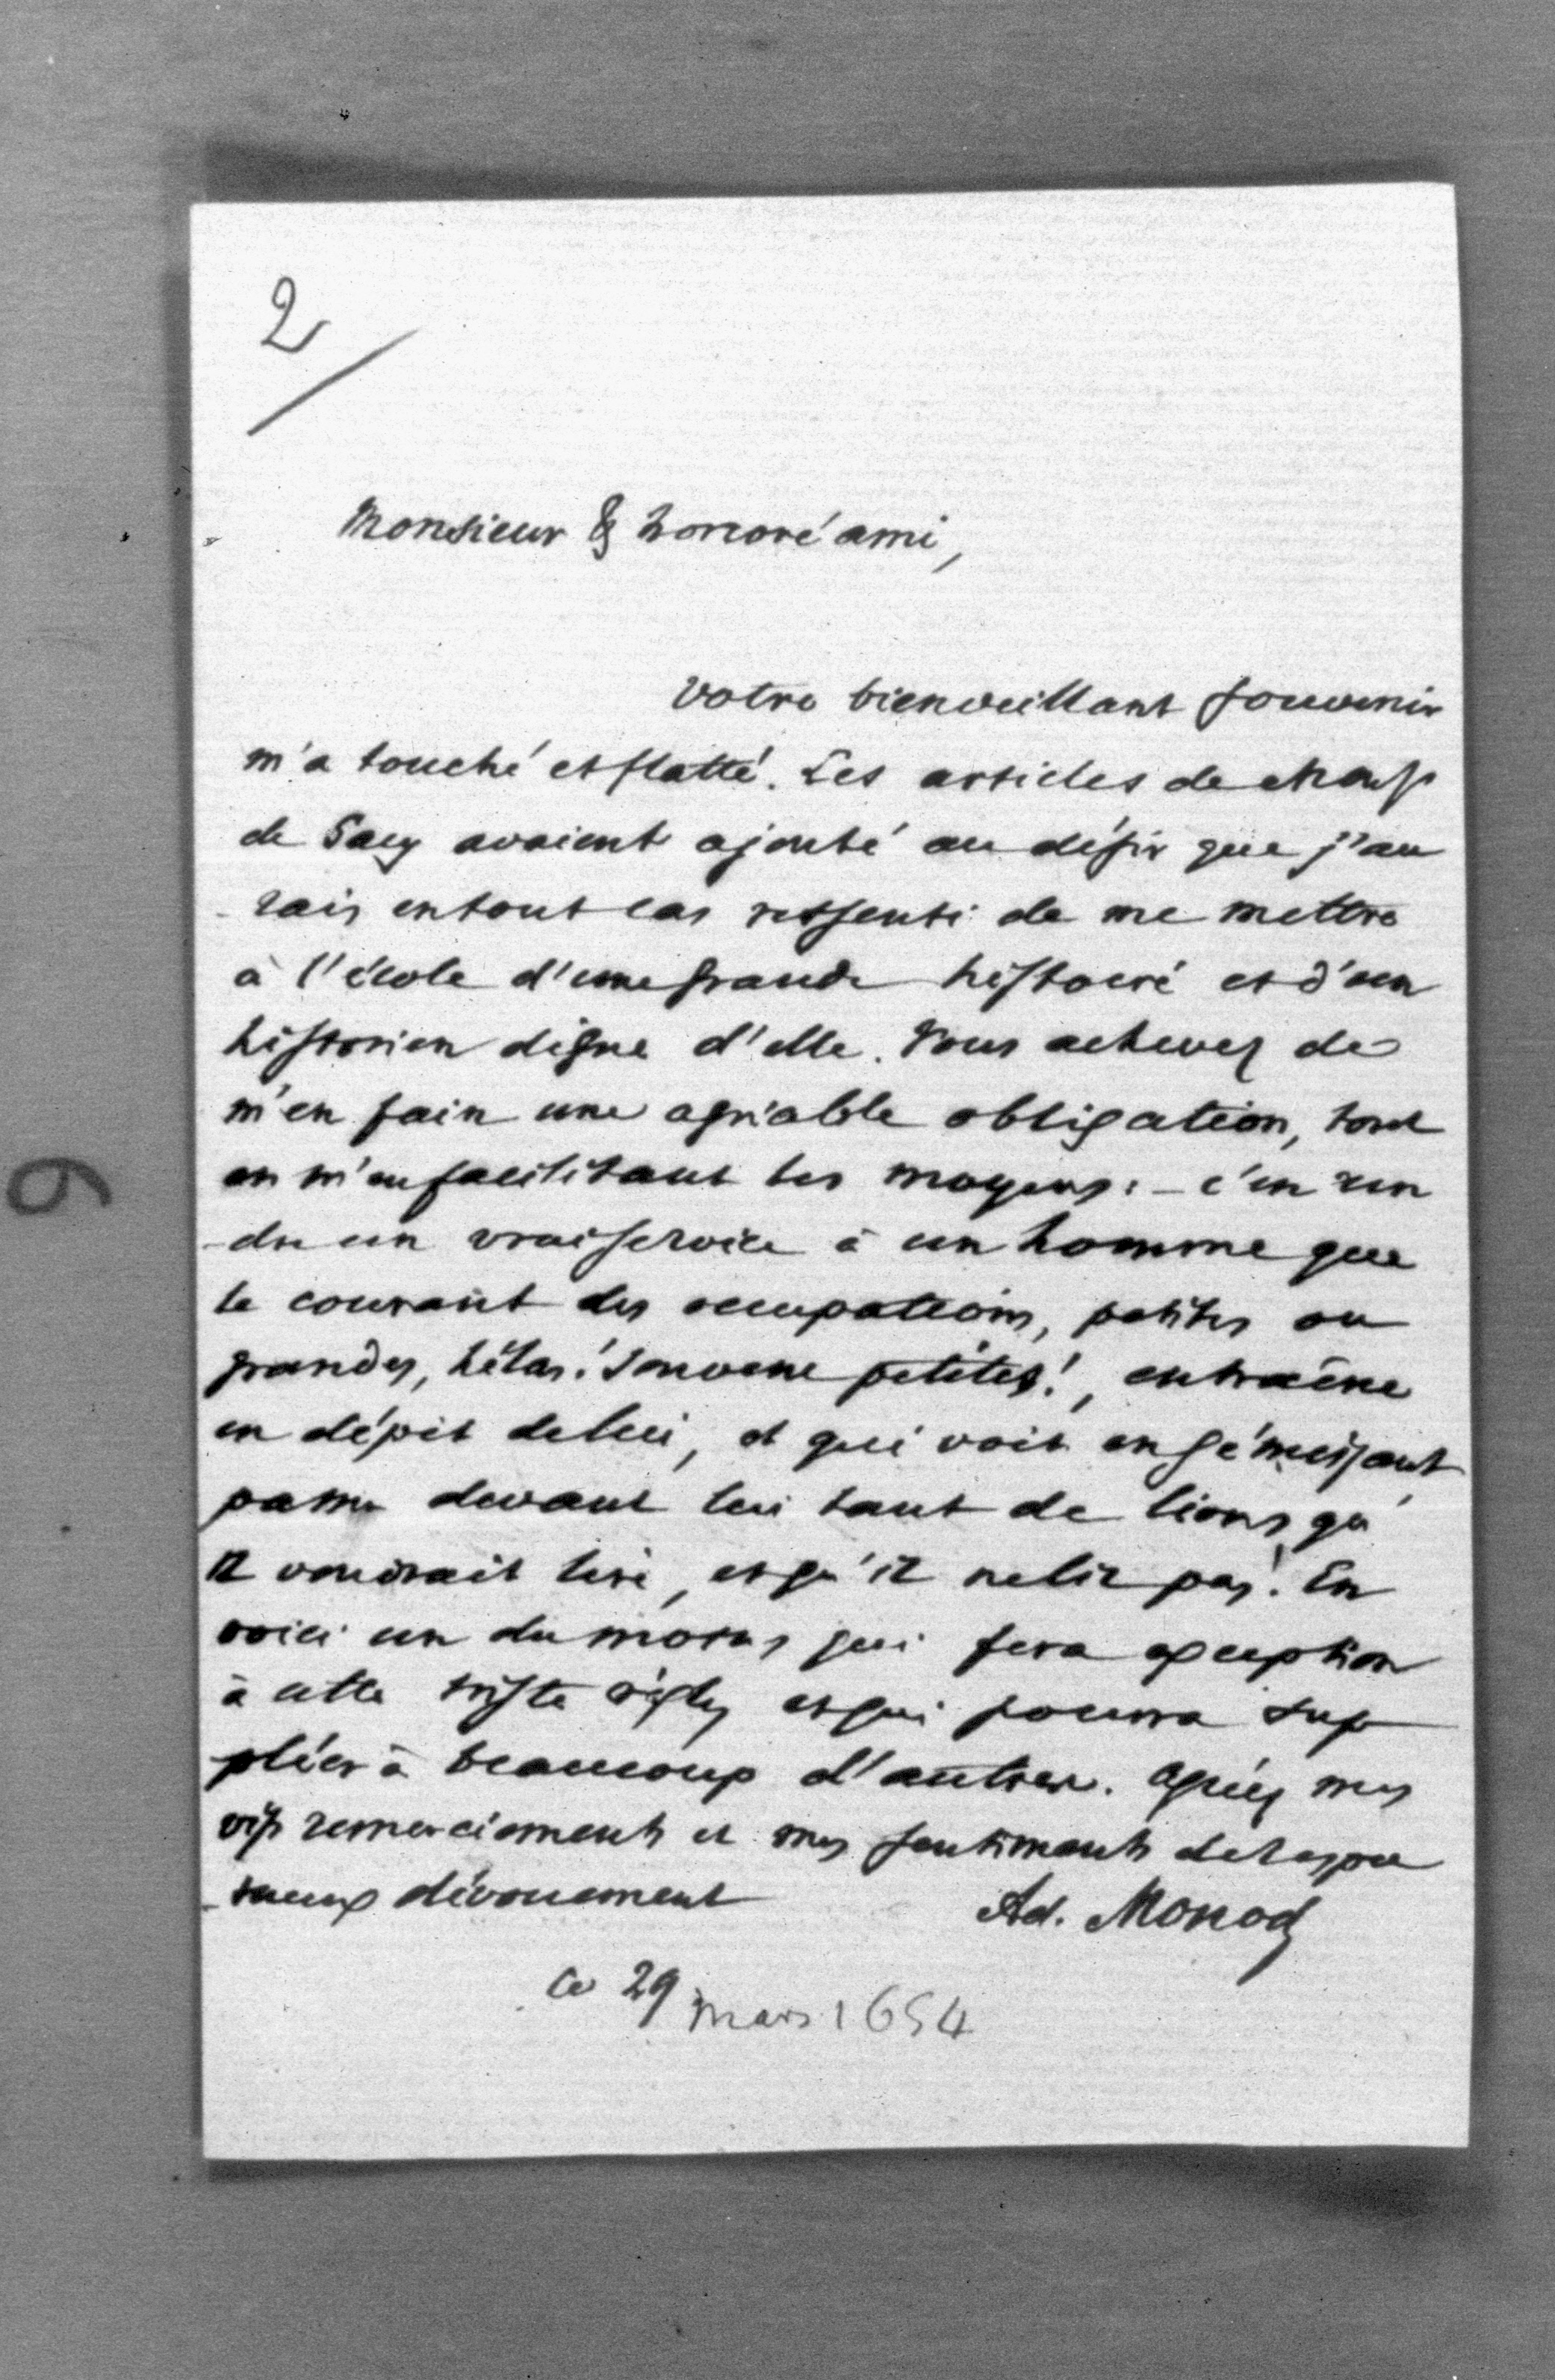 2
Monsieur & honoré ami,
Votre bienveillant souvenir
m'a touché et flatté. Les articles de
de Sacy avaient ajouté au désir que j'au
-rais en tout cas ressenti de me mettre
à l'école d'une grande histoire et d'un
historien digne d'elle. Vous achevez de
m'en faire une agréable obligation, tout
en m'en facilitant les moyens : - c'en ren
-du un vrai service à un homme que
le courant des occupations, petites ou
grandes, hélas! souvent petites!, entraîne
en dépit de lui, et qui voit en gémissant
passer devant lui tant de livres qu'
il voudrait lire, et qu'il ne lit pas. En
voici un du moins qui fera exception
à cette triste règle, et qui pourra sup
pléer à beaucoup d'autres. Agréez mes
vifs remerciements et mes sentiments de respec
-tueux dévouement
Ad. Monod
Ce 29 mars 1654
6